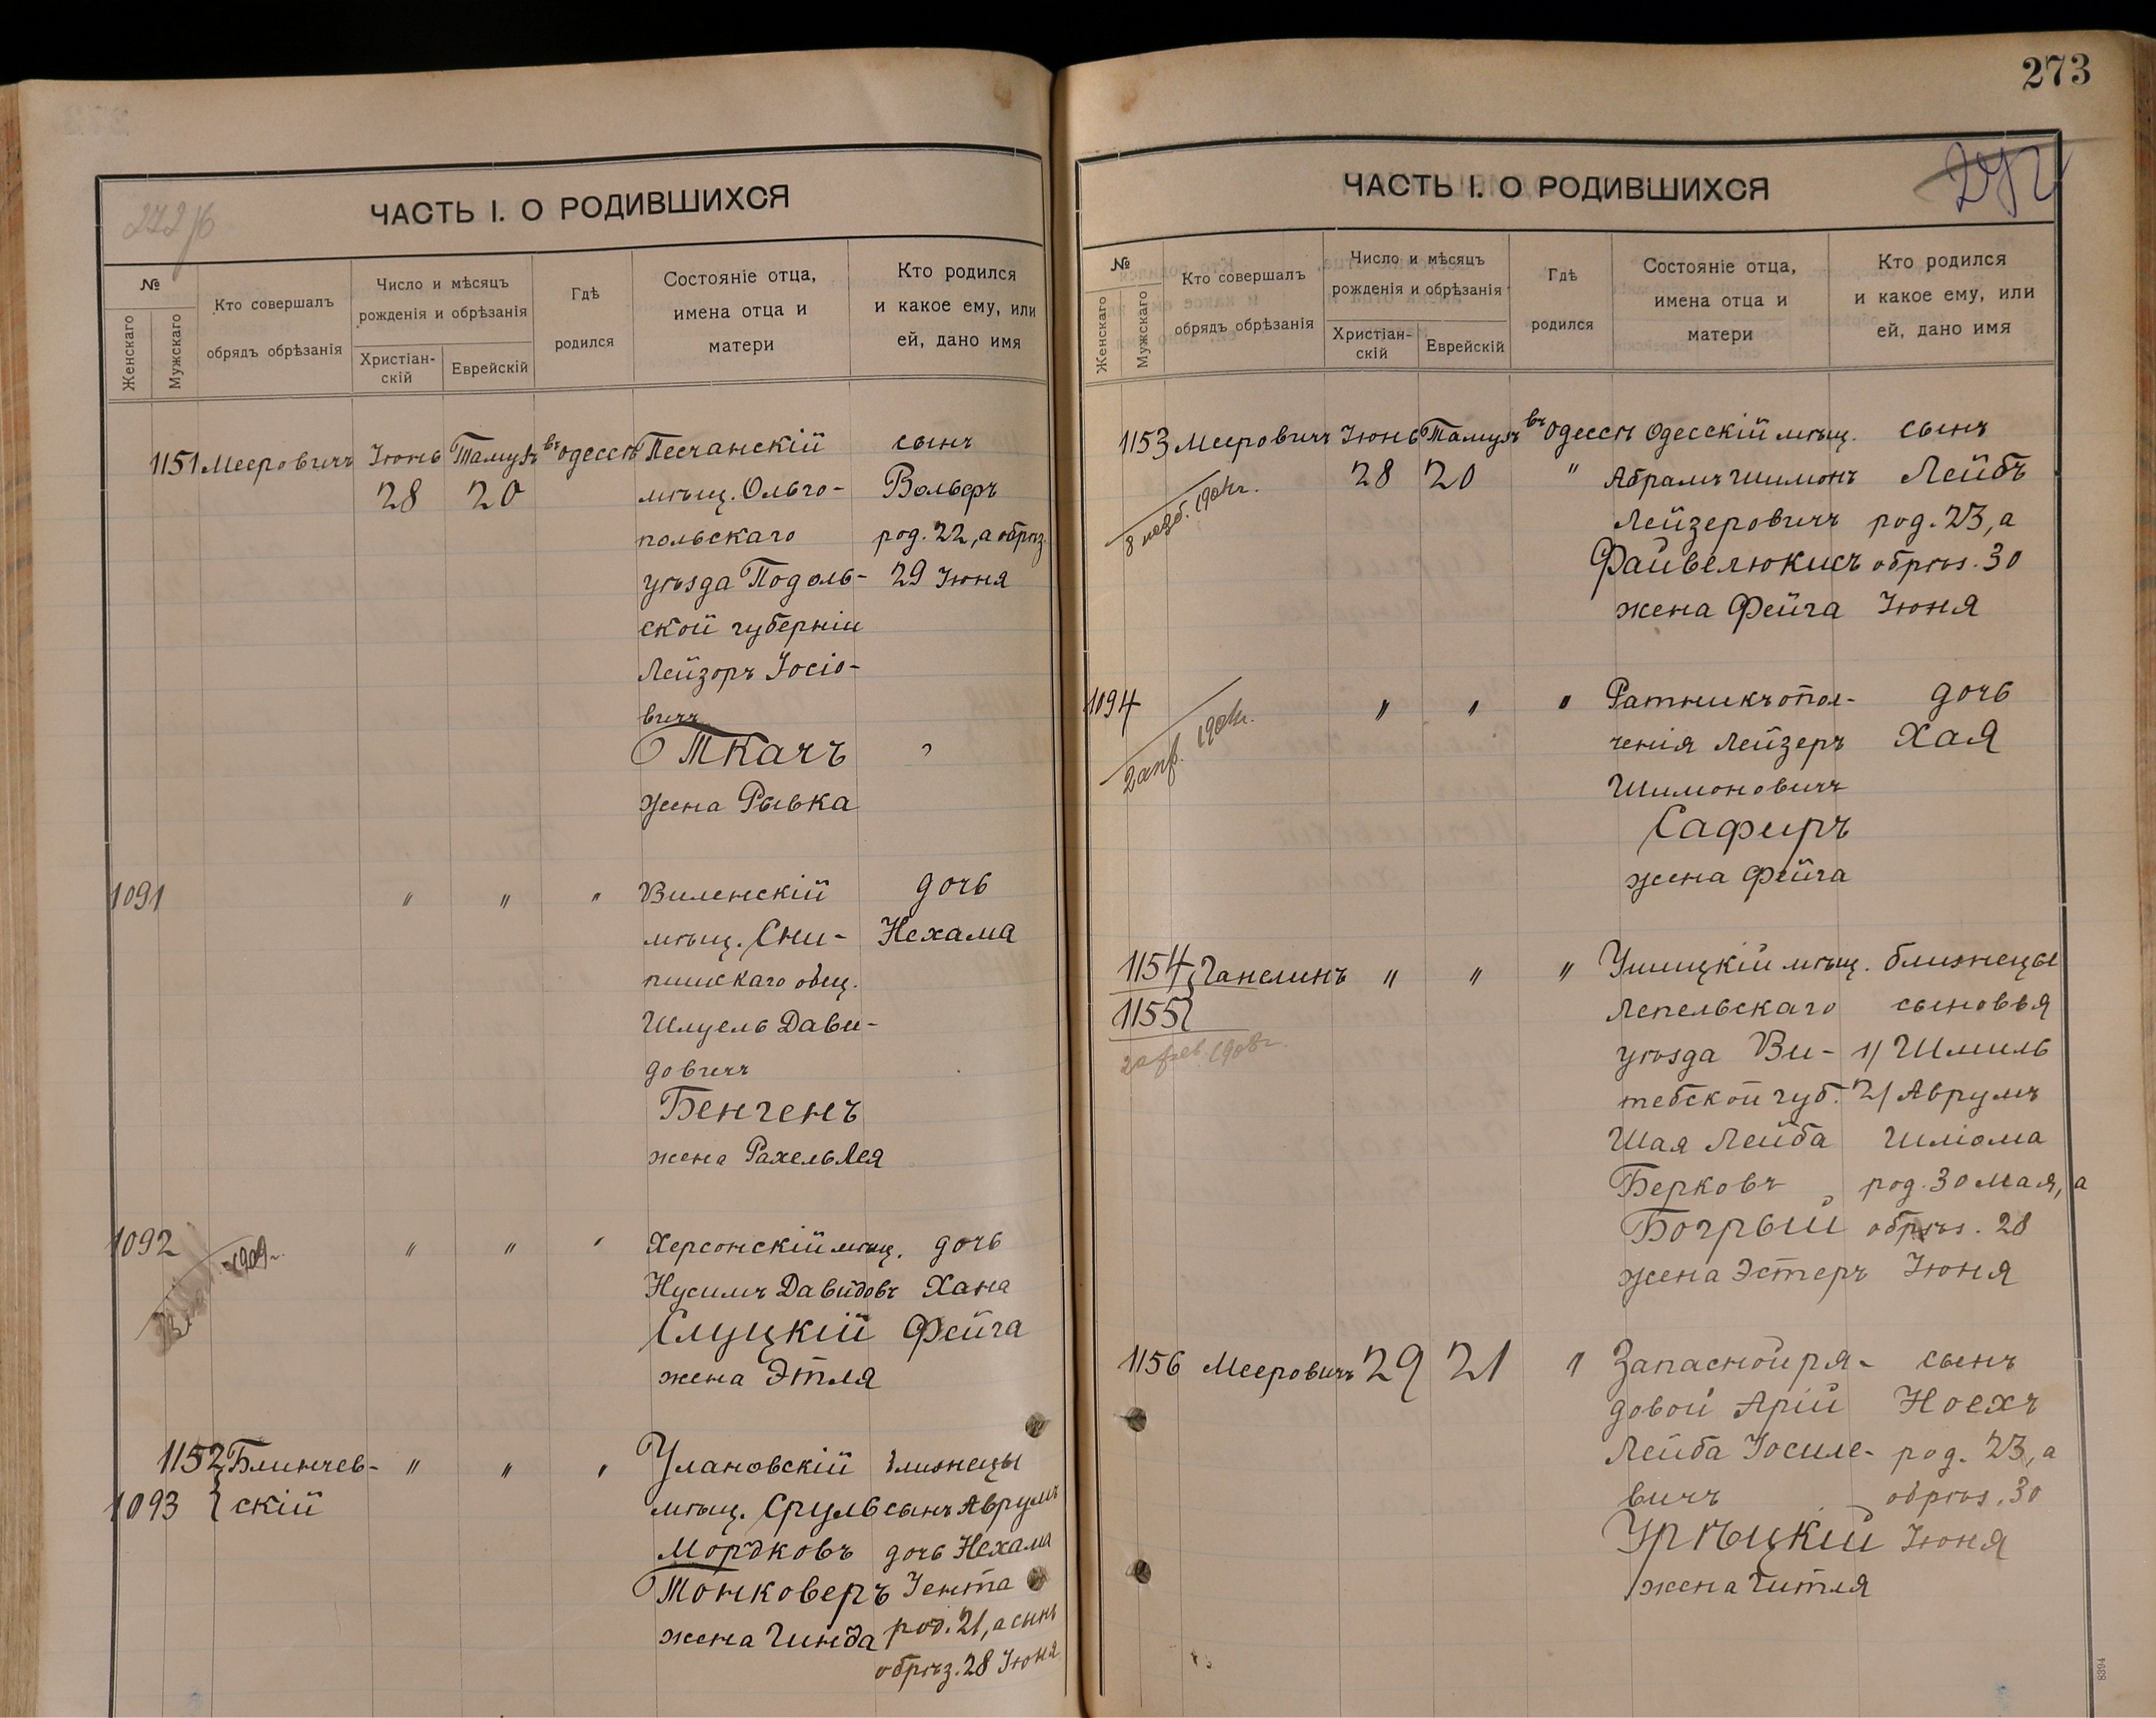 272/б
ЧАСТЬ I. О РОДИВШИХСЯ
№
Женскаго
Мужскаго
Кто совершалъ
обрядъ обрѣзанія
Число и мѣсяцъ
рожденія и обрѣзанія
Христіан-
скій
Еврейскій
Гдѣ
родился
Состояніе отца,
имена отца и
матери
Кто родился
и какое ему, или
ей, дано имя
1151 Мееровичъ Іюнь Тамузъ въ Одессѣ Песчанскій сынъ
28 20 мѣщ. Ольго- Вольфъ
польскаго род. 22, а обрѣз.
уѣзда Подоль- 29 Іюня
ской губерніи
Лейзоръ Іосіо-
вичъ
Ткачъ "
жена Рывка
1091 " " " Виленскій дочь
мѣщ. Сни- Нехама
пишскаго общ.
Шлуель Дави-
довичъ
Бенгенъ
жена Рахель Лея
1092 " " " Херсонскій мѣщ. дочь
1909 г.
Нусимъ Давидовъ Хана
Слуцкій Фейга
жена Этля
1152 Блинчев- " " " Улановскій близнецы
1093 скій мѣщ. Сруль сынъ Аврумъ
Мордковъ дочь Нехама
Тонковеръ Іента
жена Гинда род. 21, а сынъ
обрѣз. 28 Іюня
273
272
ЧАСТЬ I. О РОДИВШИХСЯ
№
Женскаго
Мужскаго
Кто совершалъ
обрядъ обрѣзанія
Число и мѣсяцъ
рожденія и обрѣзанія
Христіан-
скій
Еврейскій
Гдѣ
родился
Состояніе отца,
имена отца и
матери
Кто родился
и какое ему, или
ей, дано имя
1153 Мееровичъ Іюнь Тамузъ въ Одессѣ Одесскій мѣщ. сынъ
28 20 " Абрамъ Шимонъ Лейбъ
Лейзеровичъ род. 23, а
Файвелюкисъ обрѣз. 30
жена Фейга Іюня
1094 " " " Ратникъ опол- дочь
ченія Лейзеръ Хая
Шимоновичъ
Сафиръ
жена Фейга
1154 Ганелинъ " " " Ушицкій мѣщ. близнецы
1155 Лепельскаго сыновья
уѣзда Ви- 1/ Шмиль
тебской губ. 2/ Аврумъ
Шая Лейба Шліома
Берковъ род. 30 мая, а
Богрый обрѣз. 28
жена Эстеръ Іюня
1156 Мееровичъ 29 21 " Запасной ря- сынъ
довой Арій Ноехъ
Лейба Іосиле- род. 23, а
вичъ обрѣз. 30
Урѣцкій Іюня
жена Гитля
8394